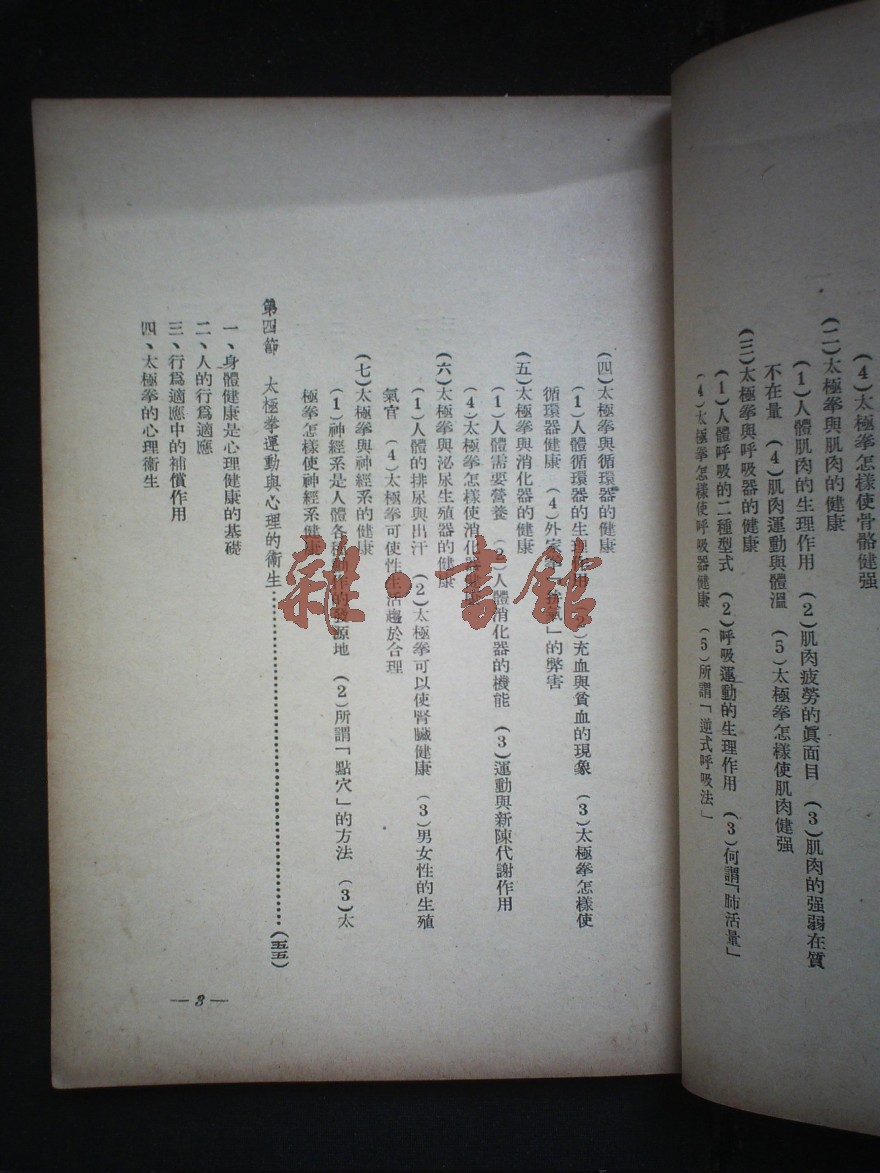 (4)太極拳怎樣使骨骼健强
(二)太極拳與肌肉的健康
(1)人體肌肉的生理作用 (2)肌肉疲勞的眞面目 (3)肌肉的强弱在質
不在量 (4)肌肉運動與體溫 (5)太極拳怎樣使肌肉健强
(三)太極拳與呼吸器的健康
(1)人體呼吸的二種型式 (2)呼吸運動的生理作用 (3)何謂「肺活量」
(4)太極拳怎樣使呼吸器健康 (5)所謂「逆式呼吸法」
(四)太極拳與循環器的健康
(1)人體循環器的生理作用 (2)充血與貧血的現象 (3)太極拳怎樣使
循環器健康 (4)外家拳「」的弊害
(五)太極拳與消化器的健康
(1)人體需要營養 (2)人體消化器的機能 (3)運動與新陳代謝作用
(4)太極拳怎樣使消化器健康
(六)太極拳與泌尿生殖器的健康
(1)人體的排尿與出汗 (2)太極拳可以使腎臟健康 (3)男女性的生殖
氣官 (4)太極拳可使性生活趨於合理
(七)太極拳與神經系的健康
(1)神經系是人體各種動作的發源地 (2)所謂「點穴」的方法 (3)太
極拳怎樣使神經系健康
第四節 太極拳運動與心理的衛生……………………(五五)
一、身體健康是心理健康的基礎
二、人的行爲適應
三、行爲適應中的補償作用
四、太極拳的心理衛生
— 3 —
雜·書館